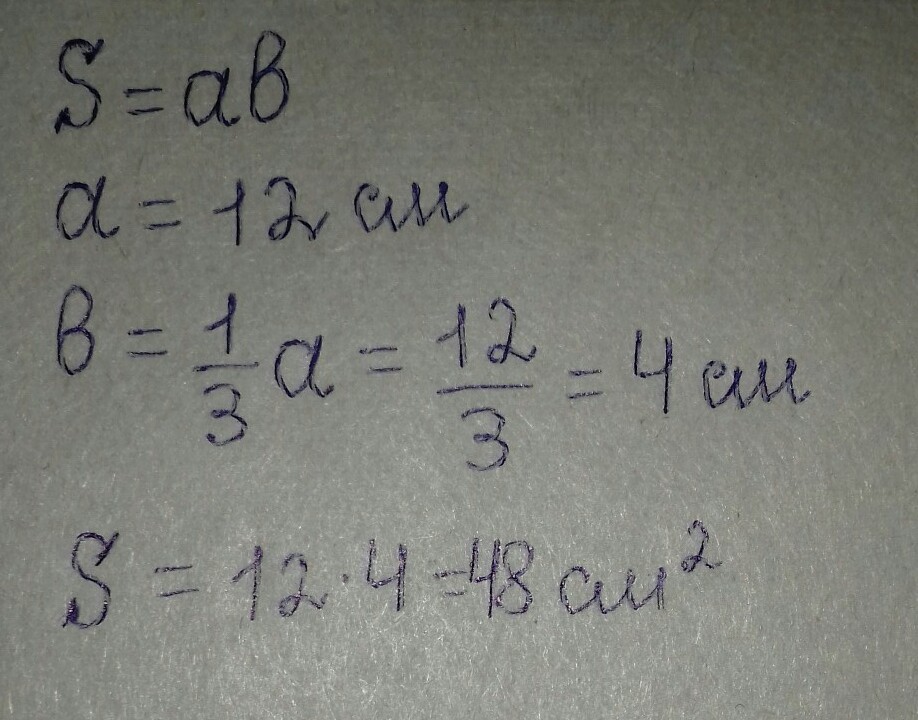 S = ab
a = 12 см
b = 1/3 a = 12/3 = 4 см
S = 12·4=48 см²